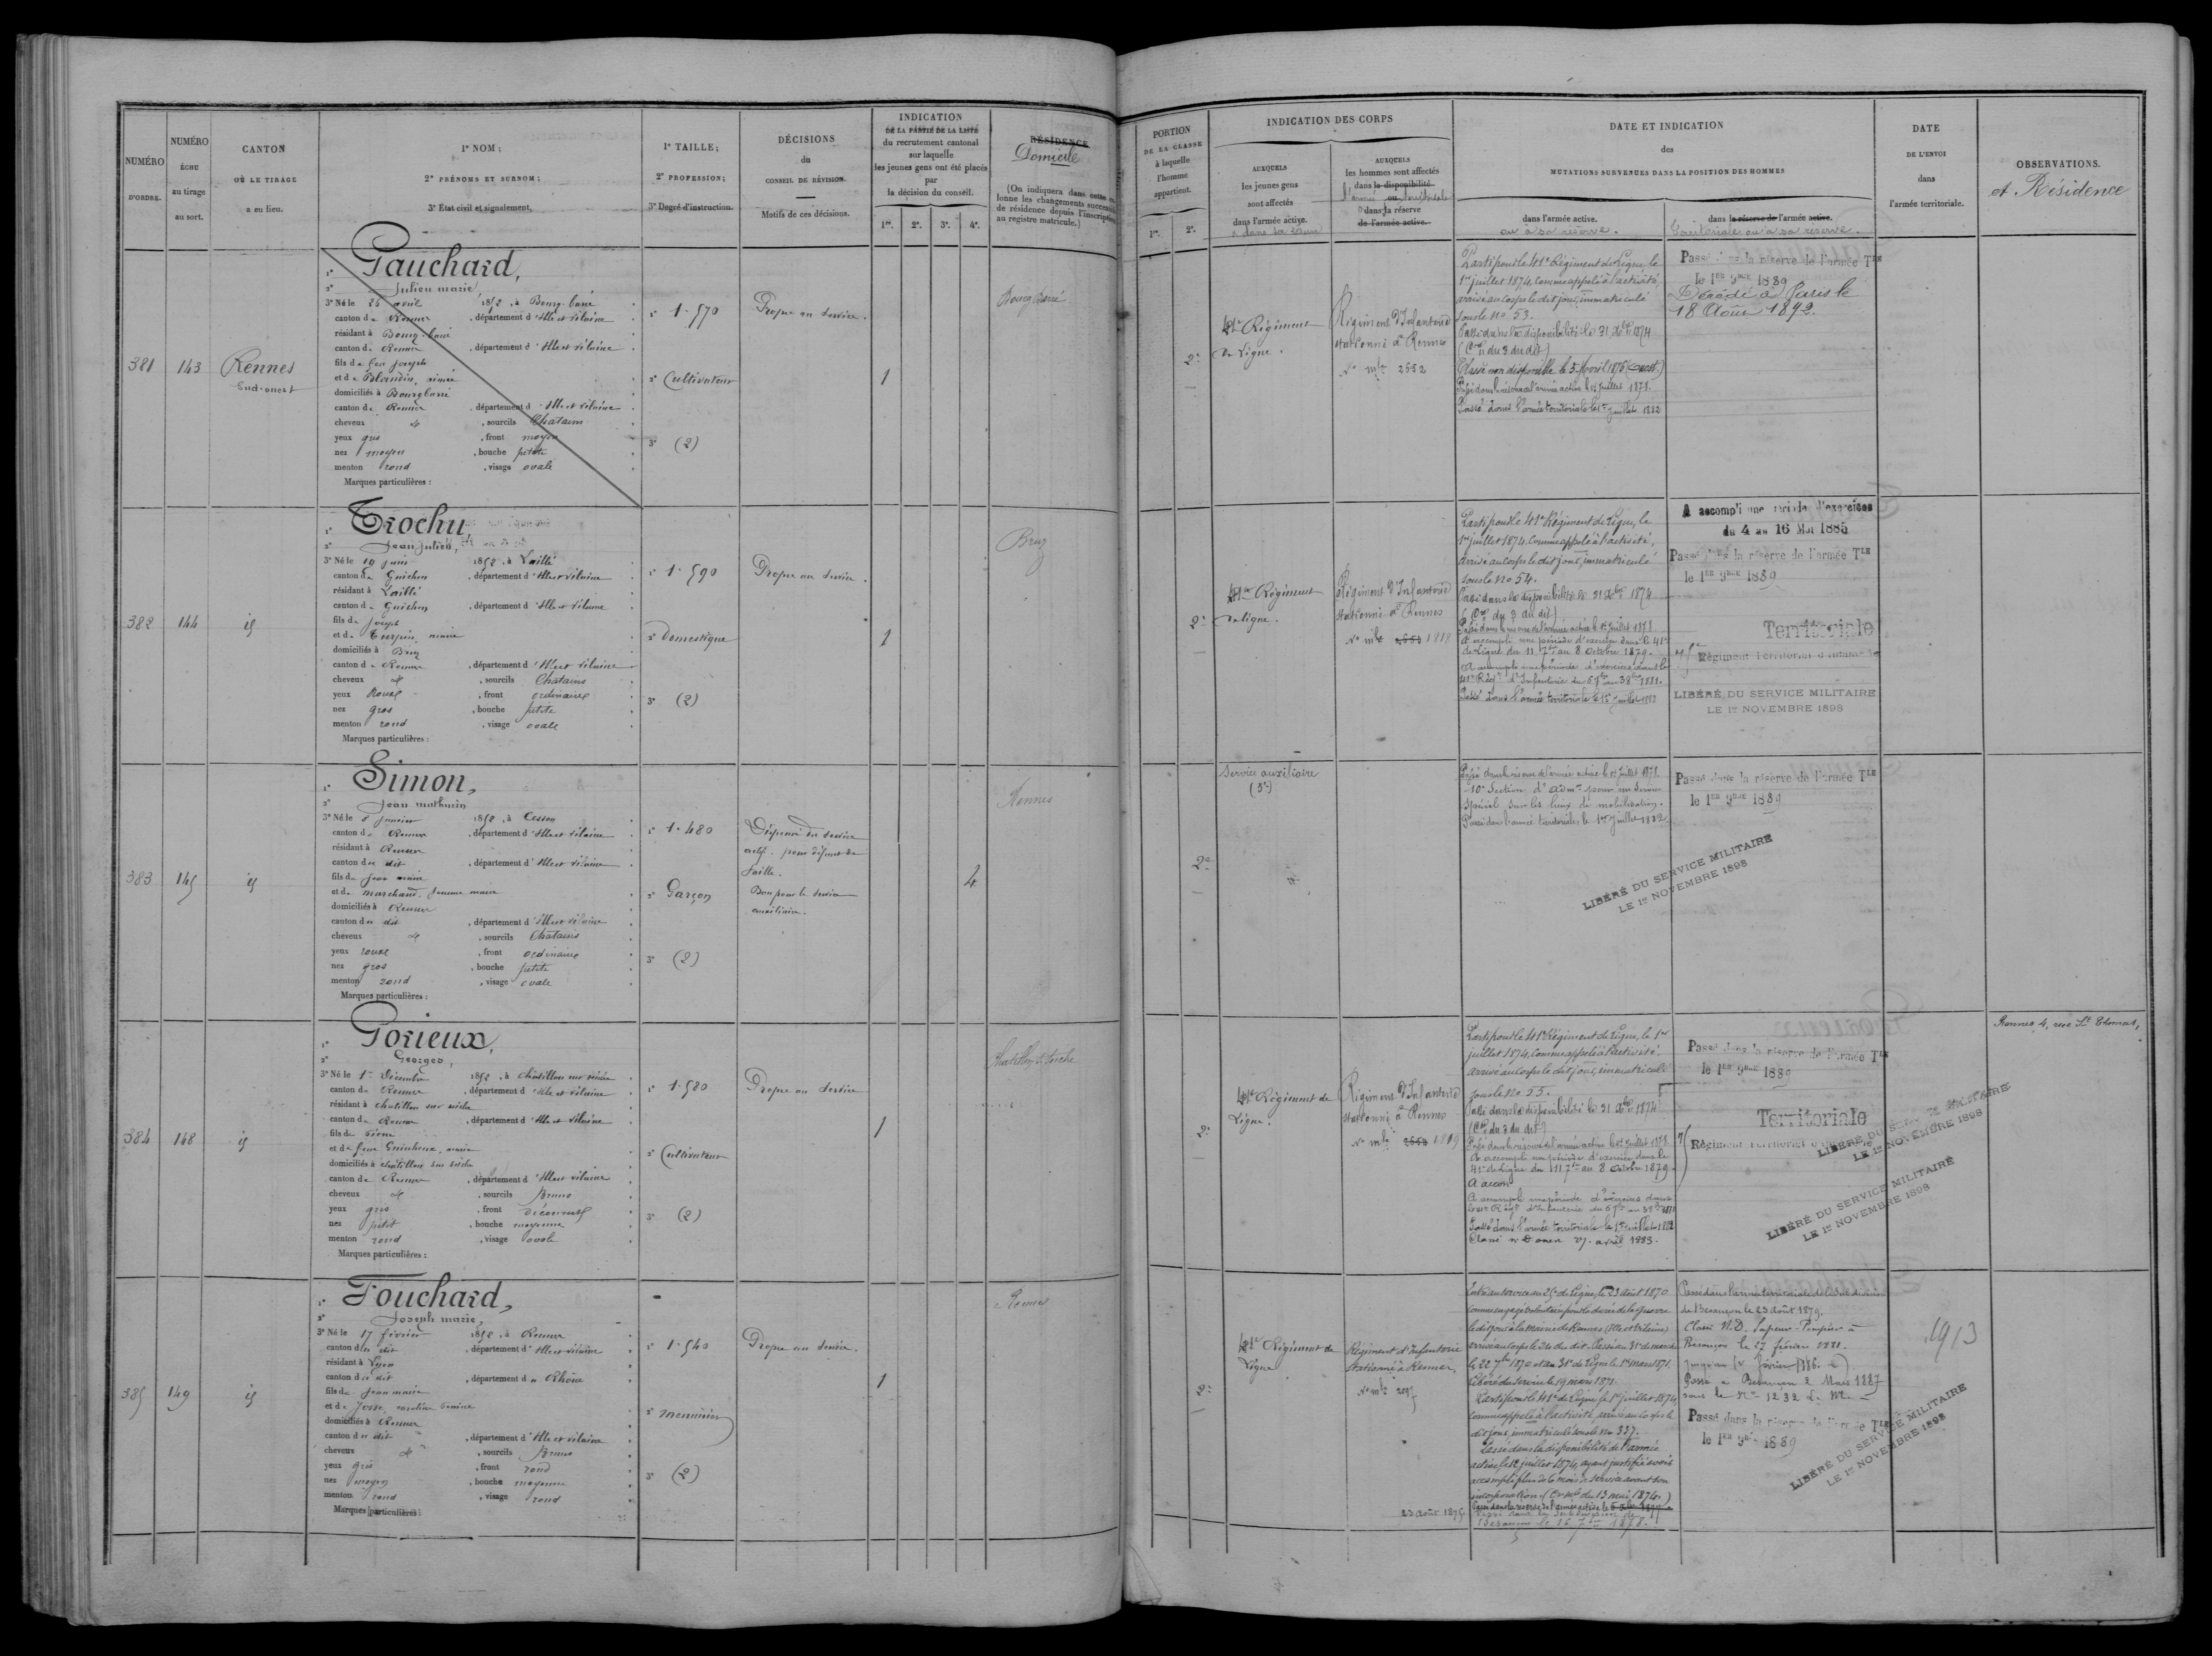 NUMÉRO
D'ORDRE.
NUMÉRO
ÉCHU
au tirage
au sort.
CANTON
OÙ LE TIRAGE
a eu lieu.
1º NOM ;
2º PRÉNOMS ET SURNOM ;
3º État civil et signalement.
1º TAILLE ;
2º PROFESSION ;
3º Degré d'instruction.
DÉCISIONS
du
CONSEIL DE RÉVISION.
Motifs de ces décisions.
INDICATION
DE LA PARTIE DE LA LISTE
du recrutement cantonal
sur laquelle
les jeunes gens ont été placés
par
la décision du conseil.
1re. 2e. 3e. 4e.
RÉSIDENCE
Domicile
(On indiquera dans cette
lonne les changements
de résidence depuis l'inscription
au registre matricule.)
381
143
Rennes
Sud-ouest
Gauchard,
Julien marie,
3º Né le 26 avril 1852, à Bourg-barré
canton de Rennes, département d'Ille et Vilaine
résidant à Bourg-barré
canton de Rennes, département d'Ille et Vilaine
fils de feu Joseph
et de Blandin
domiciliés à Bourgbarré
canton de Rennes, département d'Ille et Vilaine
cheveux, sourcils Chatains
yeux gris, front moyen
nez moyen, bouche petite
menton rond, visage ovale
Marques particulières :
1º 1.570
2º Cultivateur
3º (2)
Propre au service.
1
Bourg Barré
382
144
id
Trochu
Jean Julien,
3º Né le 19 juin 1852, à Laillé
canton de Guichen, département d'Ille et Vilaine
résidant à Laillé
canton de Guichen, département d'Ille et Vilaine
fils de Joseph
domiciliés à Bruz
canton de Rennes, département d'Ille et Vilaine
cheveux, sourcils Chatains
yeux Roux, front ordinaire
nez gros, bouche petite
menton rond, visage ovale
Marques particulières :
1º 1.590
2º domestique
3º (2)
Propre au service.
1
Bruz
383
145
id
Simon,
Jean mathurin
3º Né le 8 janvier 1852, à Cesson
canton de Rennes, département d'Ille et Vilaine
résidant à Rennes
canton du dit, département d'Ille et Vilaine
fils de Jean marie
et de marchand, Jeanne marie
domiciliés à Rennes
canton du dit, département d'Ille et Vilaine
cheveux, sourcils Chatains
yeux roux, front ordinaire
nez gros, bouche petite
menton rond, visage ovale
Marques particulières :
1º 1.480
2º Garçon
3º (2)
Dispensé du service
actif pour défaut de
taille.
Bon pour le service
auxiliaire.
4
Rennes
384
148
id
Gorieux,
Georges,
3º Né le 1er Décembre 1852, à Châtillon sur seiche
canton de Rennes, département d'Ille et Vilaine
résidant à chatillon sur seiche
canton de Rennes, département d'Ille et Vilaine
fils de Pierre
domiciliés à chatillon sur seiche
canton de Rennes, département d'Ille et Vilaine
cheveux, sourcils Bruns
yeux gris, front découvert
nez petit, bouche moyenne
menton rond, visage ovale
Marques particulières :
1º 1.580
2º Cultivateur
3º (2)
Propre au service
1
Chatillon s. Seiche
385
149
id
Fouchard,
Joseph marie,
3º Né le 17 février 1852, à Rennes
canton du dit, département d'Ille et Vilaine
résidant à Lyon
canton du dit, département du Rhône
fils de Jean marie
domiciliés à Rennes
canton du dit, département d'Ille et Vilaine
cheveux, sourcils Bruns
yeux gris, front rond
nez moyen, bouche moyenne
menton rond, visage rond
Marques particulières :
1º 1.540
2º menuisier
3º (2)
Propre au service.
1
Rennes
PORTION
DE LA CLASSE
à laquelle
l'homme
appartient.
1re. 2e.
INDICATION DES CORPS
AUXQUELS
les jeunes gens
sont affectés
dans l'armée active.
AUXQUELS
les hommes sont affectés
dans la disponibilité
l'armée ou territoriale
dans la réserve
de l'armée active.
DATE ET INDICATION
des
MUTATIONS SURVENUES DANS LA POSITION DES HOMMES
dans l'armée active.
ou à sa réserve.
dans la réserve de l'armée active.
Territoriale ou à sa réserve.
DATE
DE L'ENVOI
dans
l'armée territoriale.
OBSERVATIONS.
et Résidence
2e
41e Régiment
de Ligne.
Régiment d'Infanterie
stationné à Rennes
No mle 2652
Parti pour le 41e Régiment de Ligne, le
1er juillet 1874, comme appelé à l'activité,
arrivé au corps le dit jour, immatriculé
sous le No 53.
Passé dans la disponibilité le 31 Xbre 1874
(Con du 3 du dit)
Classé non disponible le 5 Avril 1876 (Ouest.)
Passé dans la réserve de l'armée active le 1er Juillet 1878.
Passé dans l'armée territoriale le 1er juillet 1882
Passé dans la réserve de l'armée Tle
le 1er 9bre 1889
Décédé à Paris le
18 Août 1892.
2e
41e Régiment
de ligne.
Régiment d'Infanterie
stationné à Rennes
No mle 2653 1818
Parti pour le 41e Régiment de Ligne, le
1er juillet 1874, comme appelé à l'activité,
arrivé au corps le dit jour, immatriculé
sous le No 54.
Passé dans la disponibilité le 31 Xbre 1874
(Con du 3 du dit)
Passé dans la réserve de l'armée active le 1er Juillet 1878.
A accompli une période d'exercice dans le 41e
de Ligne du 11 7bre au 8 Octobre 1879.
A accompli une période d'exercices dans le
41e Régt d'Infanterie du 6 7bre au 3 8bre 1881.
Passé dans l'armée territoriale le 1er juillet 1882
A accompli une période d'exercices
du 4 au 16 Mai 1885
Passé dans la réserve de l'armée Tle
le 1er 9bre 1889
Territoriale
Régiment Territorial d'Infanterie
LIBÉRÉ DU SERVICE MILITAIRE
LE 1er NOVEMBRE 1898
2e
Service auxiliaire
(5e)
Passé dans la réserve de l'armée active le 1er Juillet 1878.
10e Section d'Admon pour un service
spécial sur les lieux de mobilisation.
Passé dans l'armée territoriale, le 1er Juillet 1882
Passé dans la réserve de l'armée Tle
le 1er 9bre 1889
LIBÉRÉ DU SERVICE MILITAIRE
LE 1er NOVEMBRE 1898
2e
41e Régiment de
Ligne.
Régiment d'Infanterie
stationné à Rennes
No mle 2654 1819
Parti pour le 41e Régiment de Ligne, le 1er
juillet 1874, comme appelé à l'activité,
arrivé au corps le dit jour, immatriculé
sous le No 55.
Passé dans la disponibilité le 31 Xbre 1874
(Con du 3 du dit)
Passé dans la réserve de l'armée active le 1er Juillet 1878.
A accompli une période d'exercice dans le
41e de Ligne du 11 7bre au 8 Octobre 1879.
A accom
A accompli une période d'exercices dans
le 41e Régt d'Infanterie du 6 7bre au 3 8bre 1881
Passé dans l'armée territoriale le 1er Juillet 1882
Classé n. D. 27 avril 1883.
Passé dans la réserve de l'armée Tle
le 1er 9bre 1889
Territoriale
Régiment Territorial d'Infanterie
LIBÉRÉ DU SERVICE MILITAIRE
LE 1er NOVEMBRE 1898
LIBÉRÉ DU SERVICE MILITAIRE
LE 1er NOVEMBRE 1898
Rennes 4, rue St Thomas,
2e
41e Régiment de
Ligne
Régiment d'Infanterie
stationné à Rennes,
No mle 2097
23 Août 1875
Entré au service au 25e de Ligne, le 23 Août 1870
comme engagé volontaire pour la durée de la guerre
le dit jour à la Mairie de Rennes (Ille et Vilaine)
arrivé au corps le 24 du dit. Passé au 31e de marche
le 22 7bre 1870 et au 31e de Ligne le 1er mars 1871.
Libéré du service le 19 mars 1871.
Parti pour le 41e de Ligne le 1er juillet 1874,
comme appelé à l'activité, arrivé au corps le
dit jour, immatriculé sous le No 337.
Passé dans la disponibilité de l'armée
active le 12 juillet 1874, ayant justifié avoir
accompli plus de 6 mois de service avant son
incorporation (du 13 mai 1874.)
Passé dans la réserve de l'armée active le
Passé dans la Subdivision de
Besançon le 16 7bre 1878.
Passé dans l'armée territoriale de la Subdivision
de Besançon le 23 Août 1879.
Classé N.D. Sapeur-Pompier à
Besançon le 17 février 1881.
Passé à Besançon 2 Mars 1887
sous le No 1232 L. M.
Passé dans la réserve de l'armée Tle
le 1er 9bre 1889
LIBÉRÉ DU SERVICE MILITAIRE
LE 1er NOVEMBRE 1898
1913